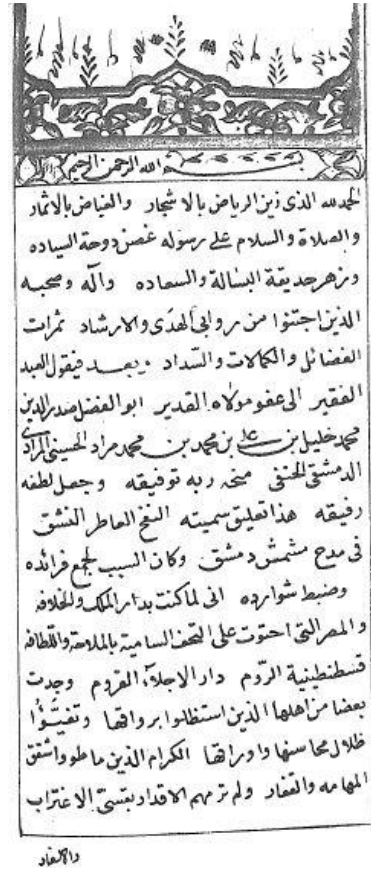 بسم الله الرحمن الرحيم
الحمد لله الذى زين الرياض بالاشجار والغياض بالاثمار
والصلاة والسلام على رسوله غصن دوحة السياده
وزهر حديقة البسالة والسعاده وآله وصحبه
الذين اجتنوا من روابى الهدى والارشاد ثمرات
الفضائل والكمالات والسداد وبعد فيقول العبد
الفقير الى عفو مولاه القدير ابو الفضل صدر الدين
محمد خليل بن على بن محمد بن محمد مراد الحسينى المرادى
الدمشقى الحنفى منحه ربه توفيقه وجعل لطفه
رفيقه هذا تعليق سميته النفح العاطر النشق
فى مدح مشمش دمشق وكان السبب لجمع فرائده
وضبط شوارده انى لما كنت بدار الملك والخلافه
والمصر التى احتوت على التحف السامية بالملاحة واللطافه
قسطنطينية الروم دار الاجلآء القروم وجدت
بعضا من اهلها الذين استظلوا برواقها وتفيئوا
ظلال محاسنها واوراقها الكرام الذين ما طووا شقق
المهامه والقفار ولم ترمهم الاقدار بقسى الاغتراب